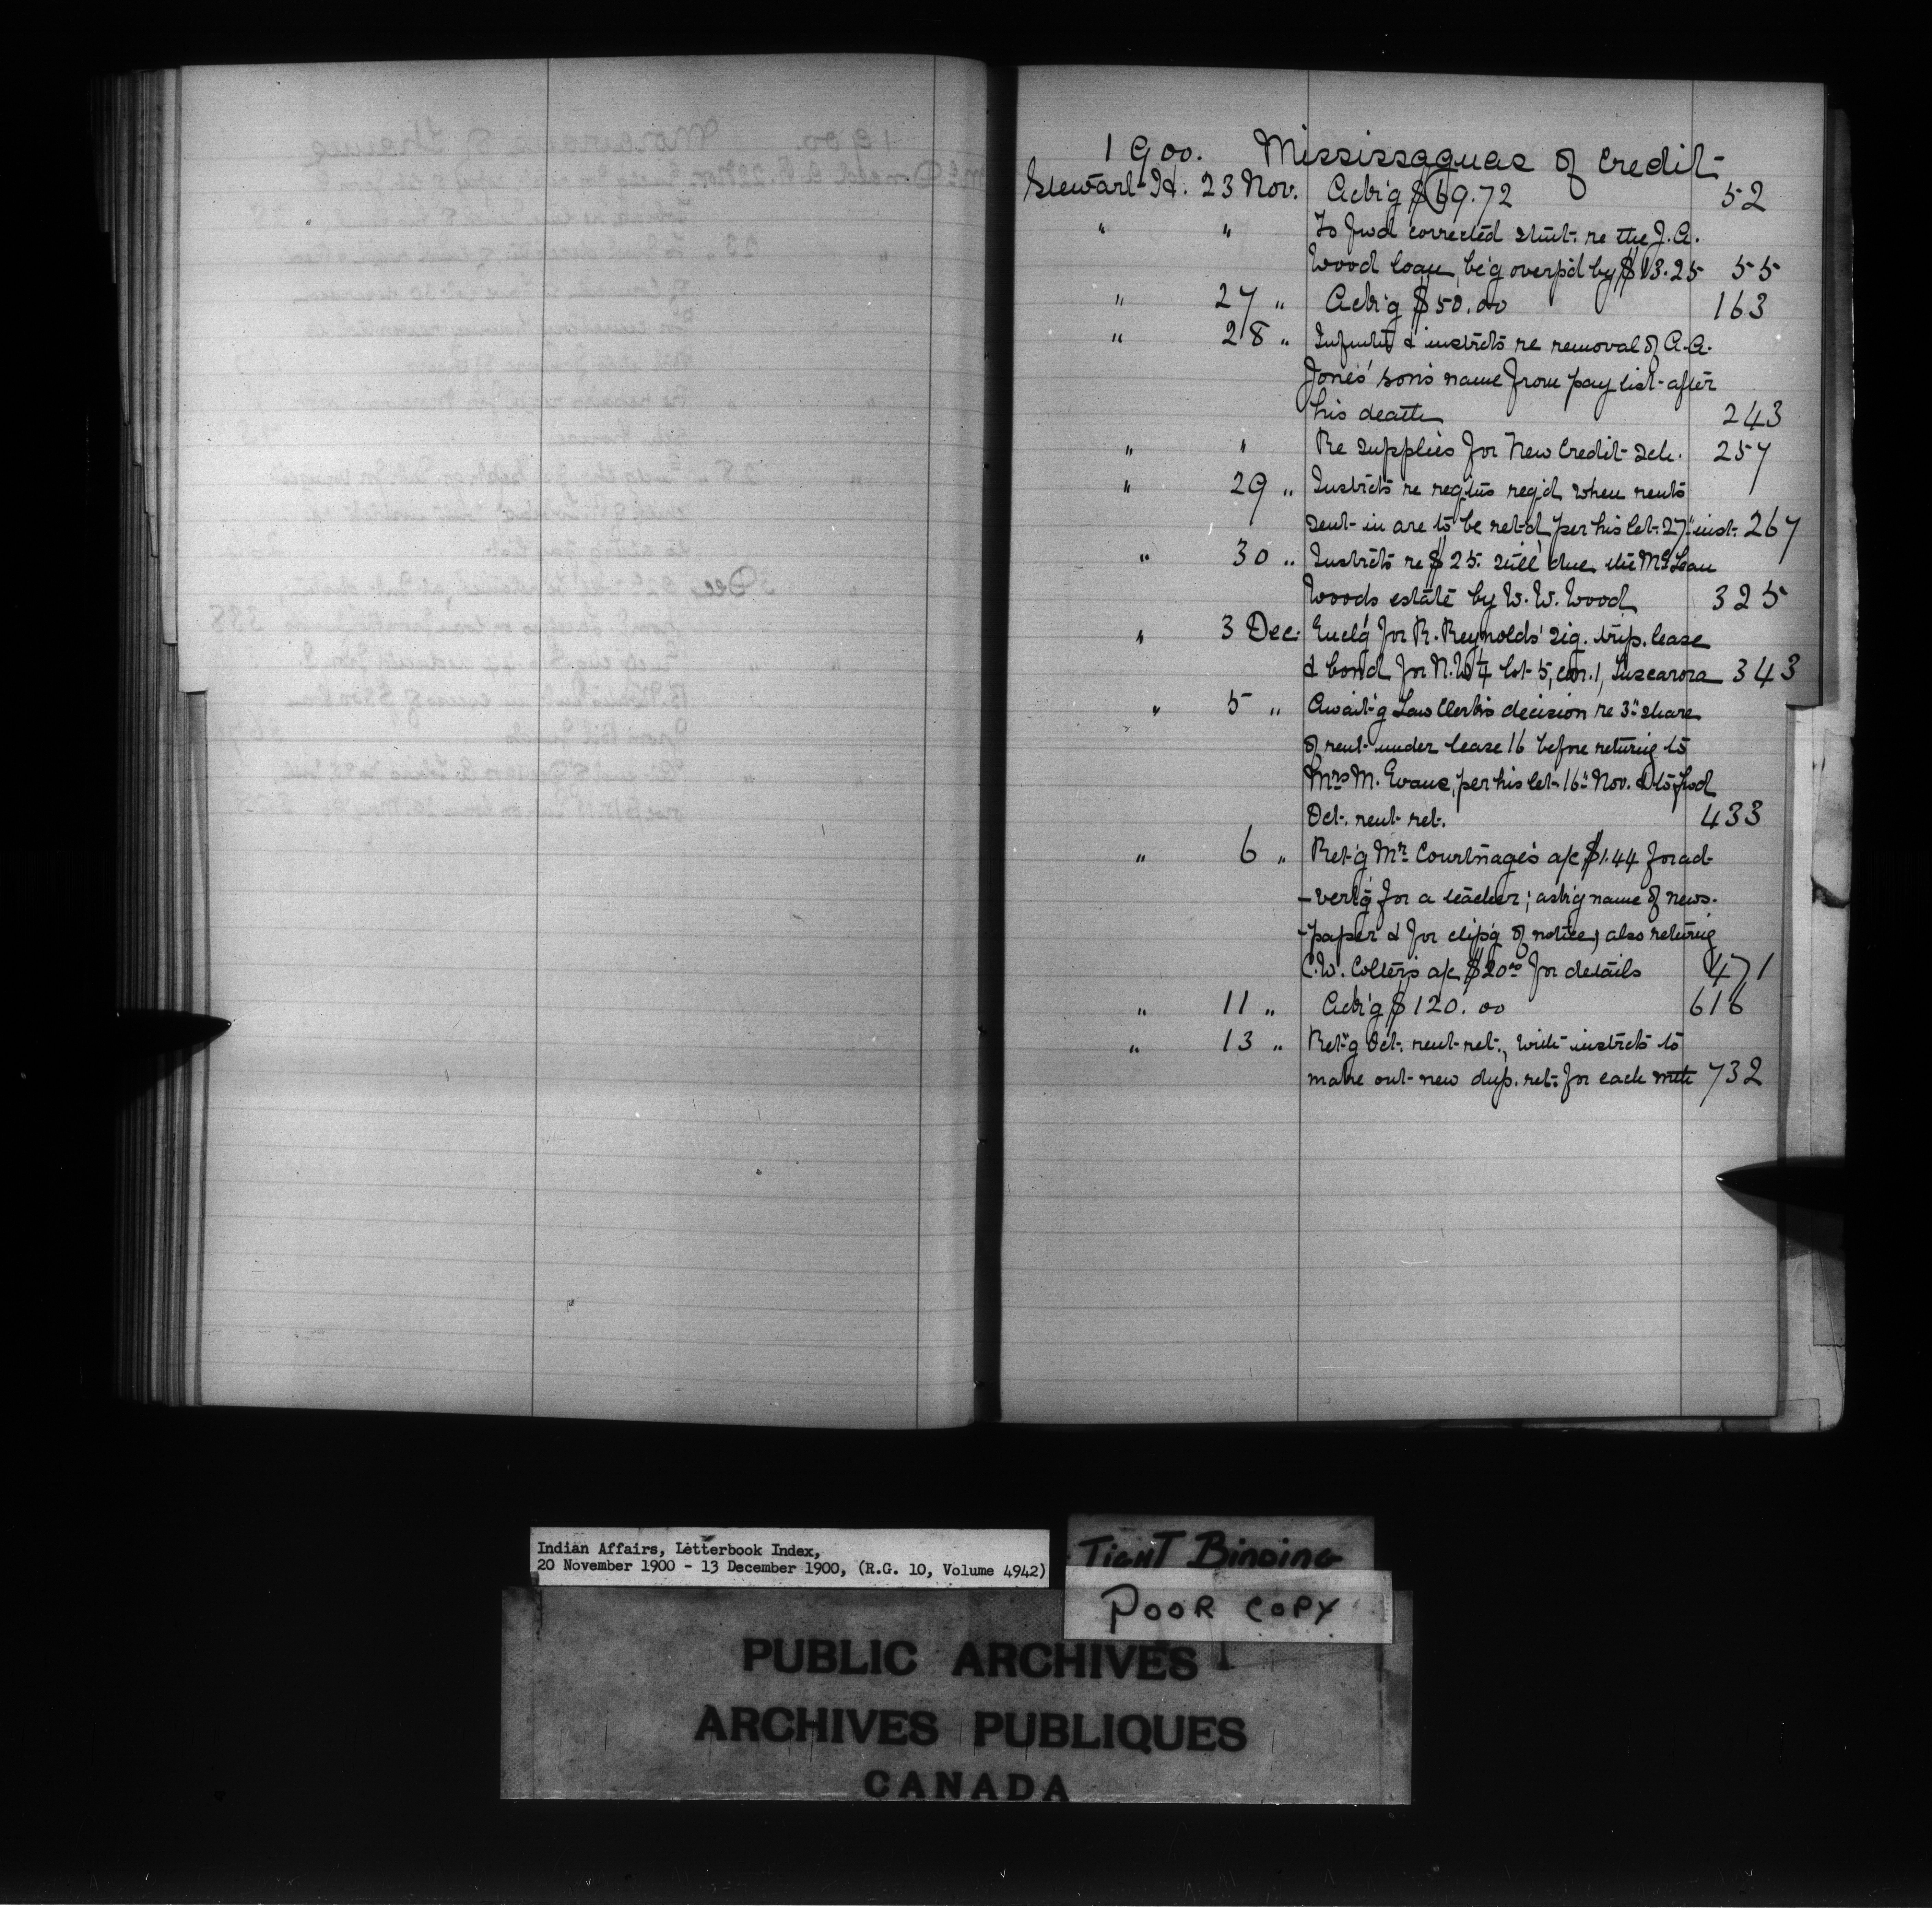 1900. Mississaguas of Credit
Stewart H. 23 Nov. Ack'g $69.72 52
" " To fwd corrected stmt. re the J.A.
Wood loan, be'g overp'd by $13.25 55
" 27 " Ack'g $50.00 163
" 28 " Infmtn & instrcts re removal of A.A.
Jones' son's name from pay list after
his death 243
" " Re supplies for New Credit Sch. 257
" 29 " Instrcts re regtns reg'd when rents
sent in are to be ret'd, per his let. 27" inst. 267
" 30 " Instrcts re $25. still due the McLean
Woods estate by W.W. Wood 325
" 3 Dec. Encl'g for R. Reynolds' sig. trip. lease
& bond for N.W¼ lot 5, con. 1, Tuscarora 343
" 5 " Await'g Law Clerk's decision re 3" share
of rent under lease 16 before return'g to
Mrs M. Evans, per his let. 16" Nov. & to fwd
Oct. rent ret. 433
" 6 " Ret'g Mr Courtnage's a/c $1.44 for ad-
-vert'g for a teacher; ask'g name of news-
-paper & for clip'g of notice; also return'g
C.W. Colter's a/c $20.00 for details 471
" 11 " Ack'g $120.00 616
" 13 " Ret'g Oct. rent ret., with instrcts to
make out new dup. ret. for each mth 732
Indian Affairs, Letterbook Index,
20 November 1900 - 13 December 1900, (R.G. 10, Volume 4942)
TIGHT BINDING
POOR COPY
PUBLIC ARCHIVES
ARCHIVES PUBLIQUES
CANADA